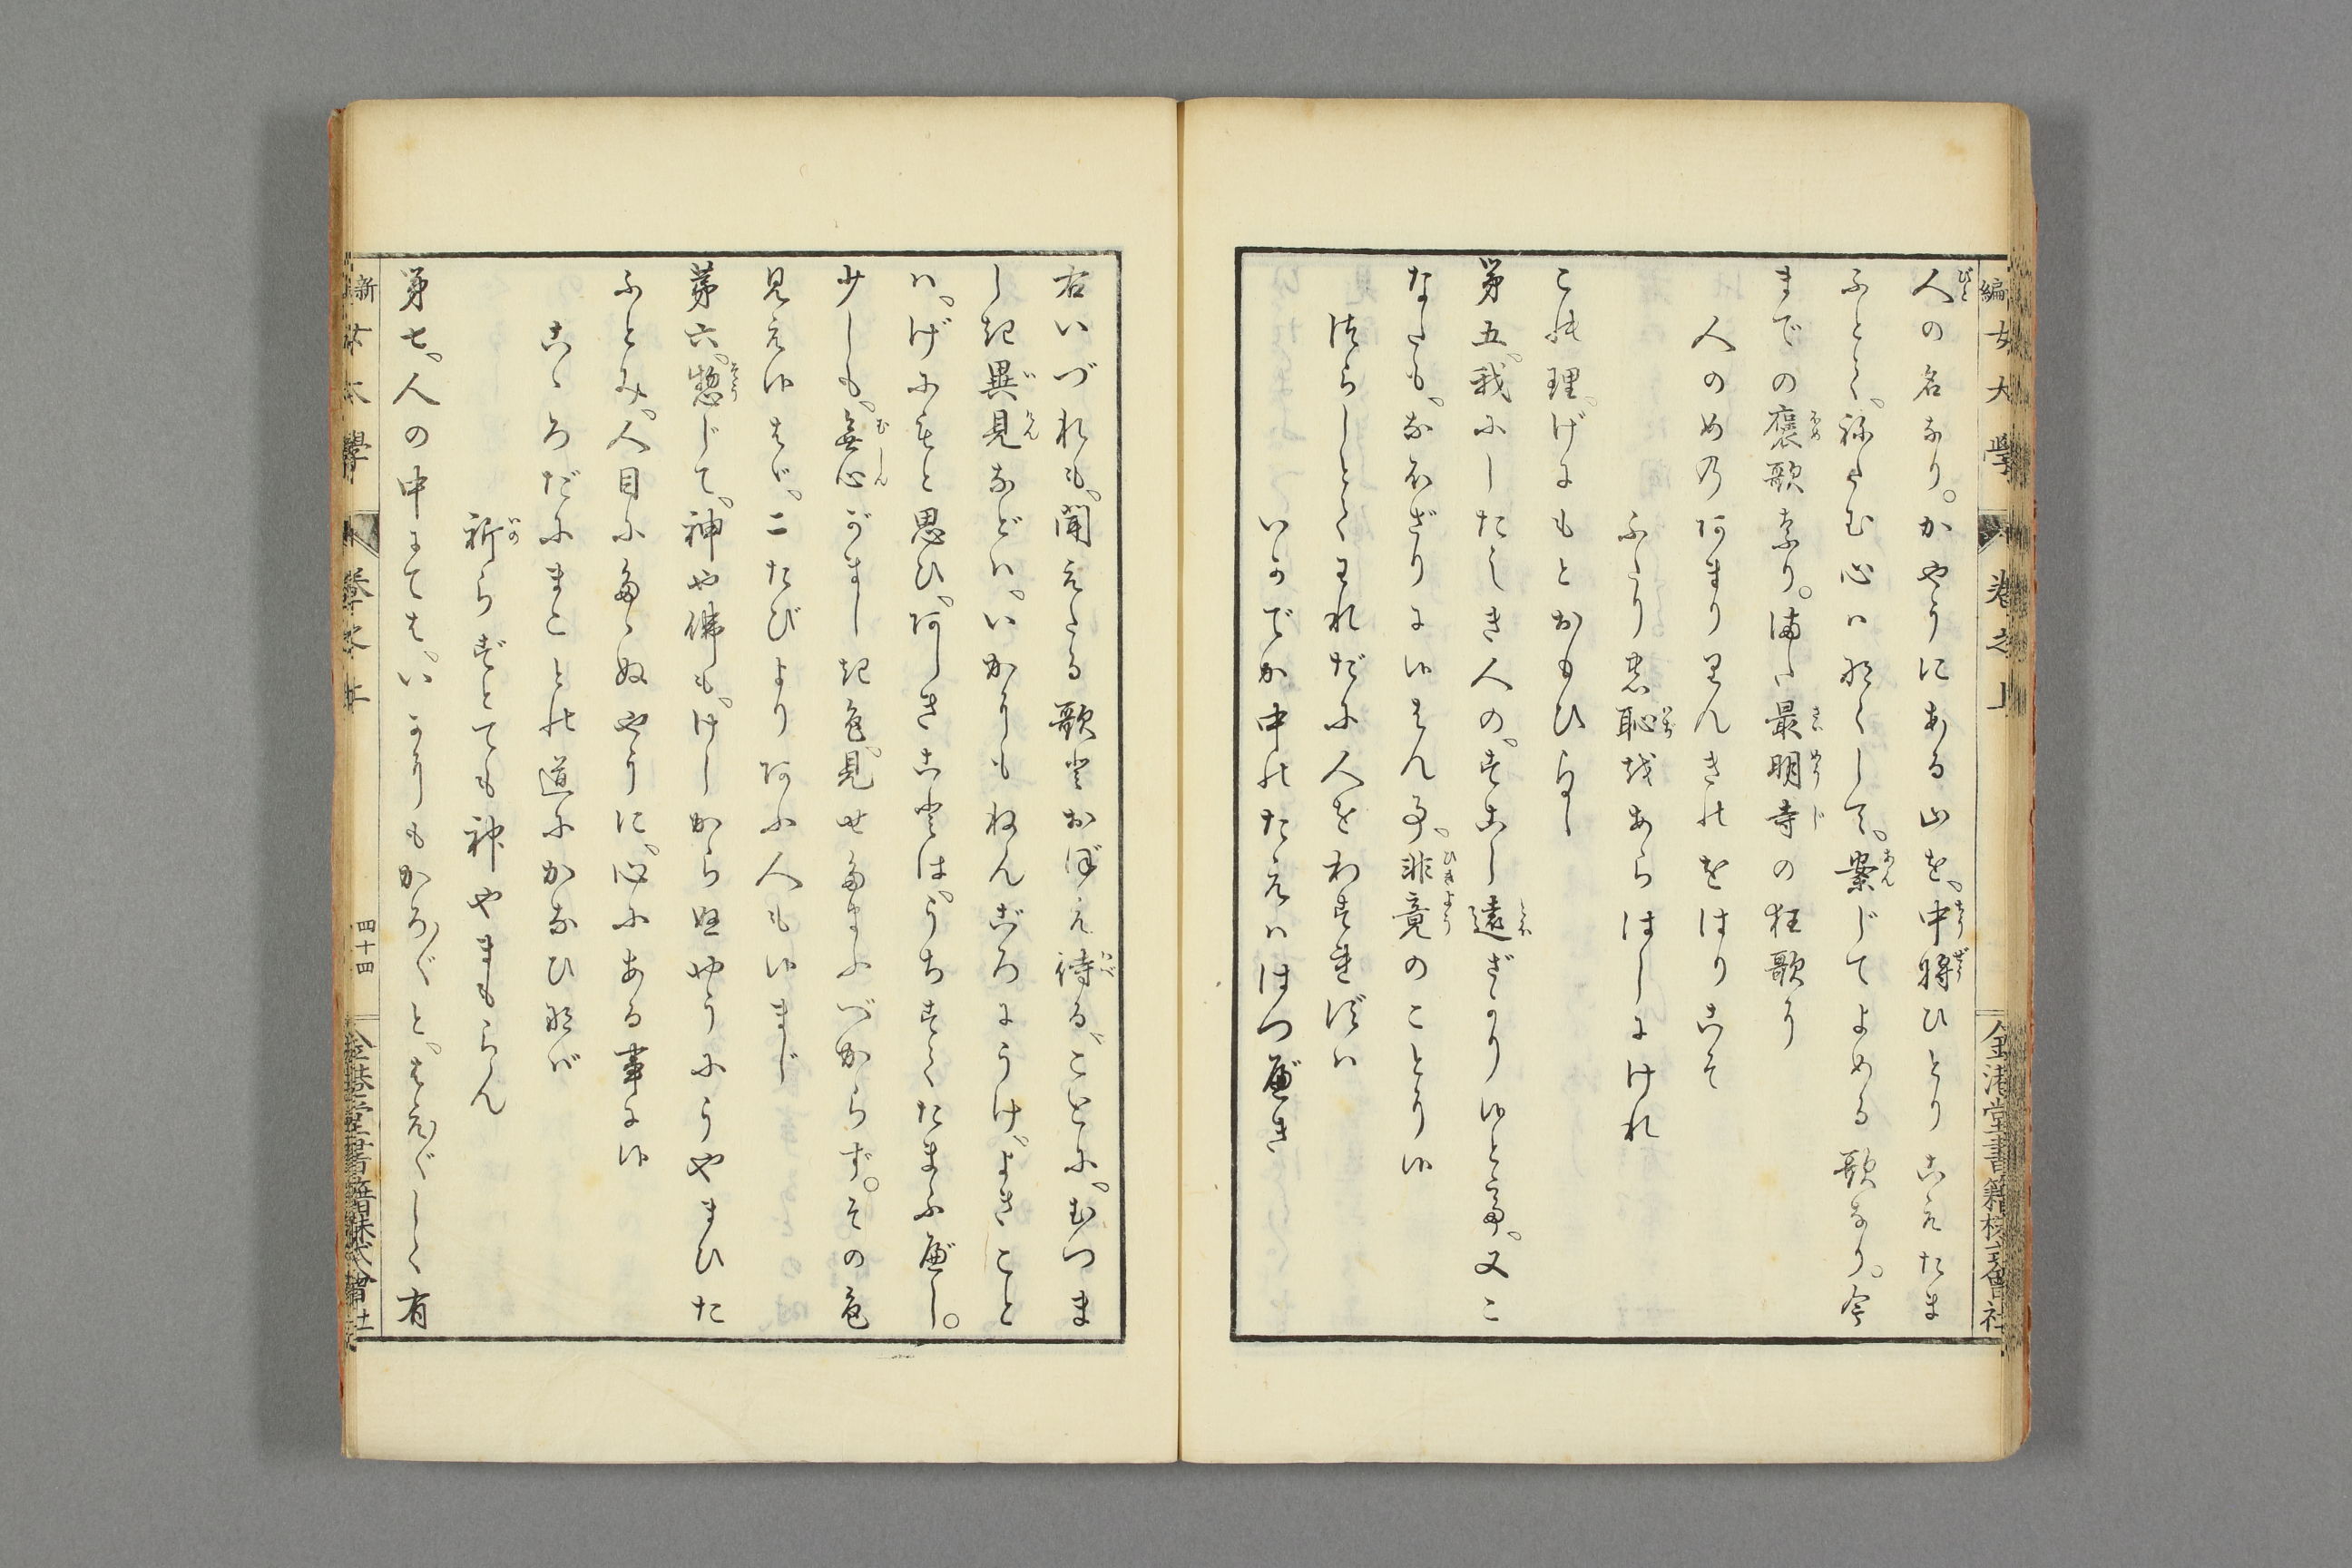 編女大學 卷之上 金港堂書籍株式會社
人の名なり。かやうにある山を、中将ひとりこえたま
ふとて、ねたむ心はなくして、案じてよめる歌なり。今
までの褒歌なり。满、最明寺の狂歌に
人のめのあまりりんきのをはりこそ
ふたりの恥をあらはしにけれ
この理、げにもとおもひ
第五、我にしたしき人の、すこし遠ざかり候とき、又こ
なたも、なほざりに候はん事、非竟のことに候
つらしとてわれだに人をわすれずは
いかでか中のたえははつべき
右いづれも、聞えたる歌とおぼえ侍る、ことに、むつま
しき異見などは、いかにもねんごろにうけ、よきこと
は、げにもと思ひ、あしきことは、うちすてたまふべし。
少しも、無心がましき色、見せたまふべからず。その色
見え候はゞ、二たびよりあふ人も候まじ
第六、惣じて、神や佛も、けしからぬやうにうやまひた
ふとみ、人目にたゝぬやうに、心にある事に候
こゝろだにまことの道にかなひなば
祈らずとても神やまもらん
第七、人の中にては、いかにもかろ〴〵と、はえ〴〵しく有
新女大學 卷之上 四十四 金港堂書籍株式會社